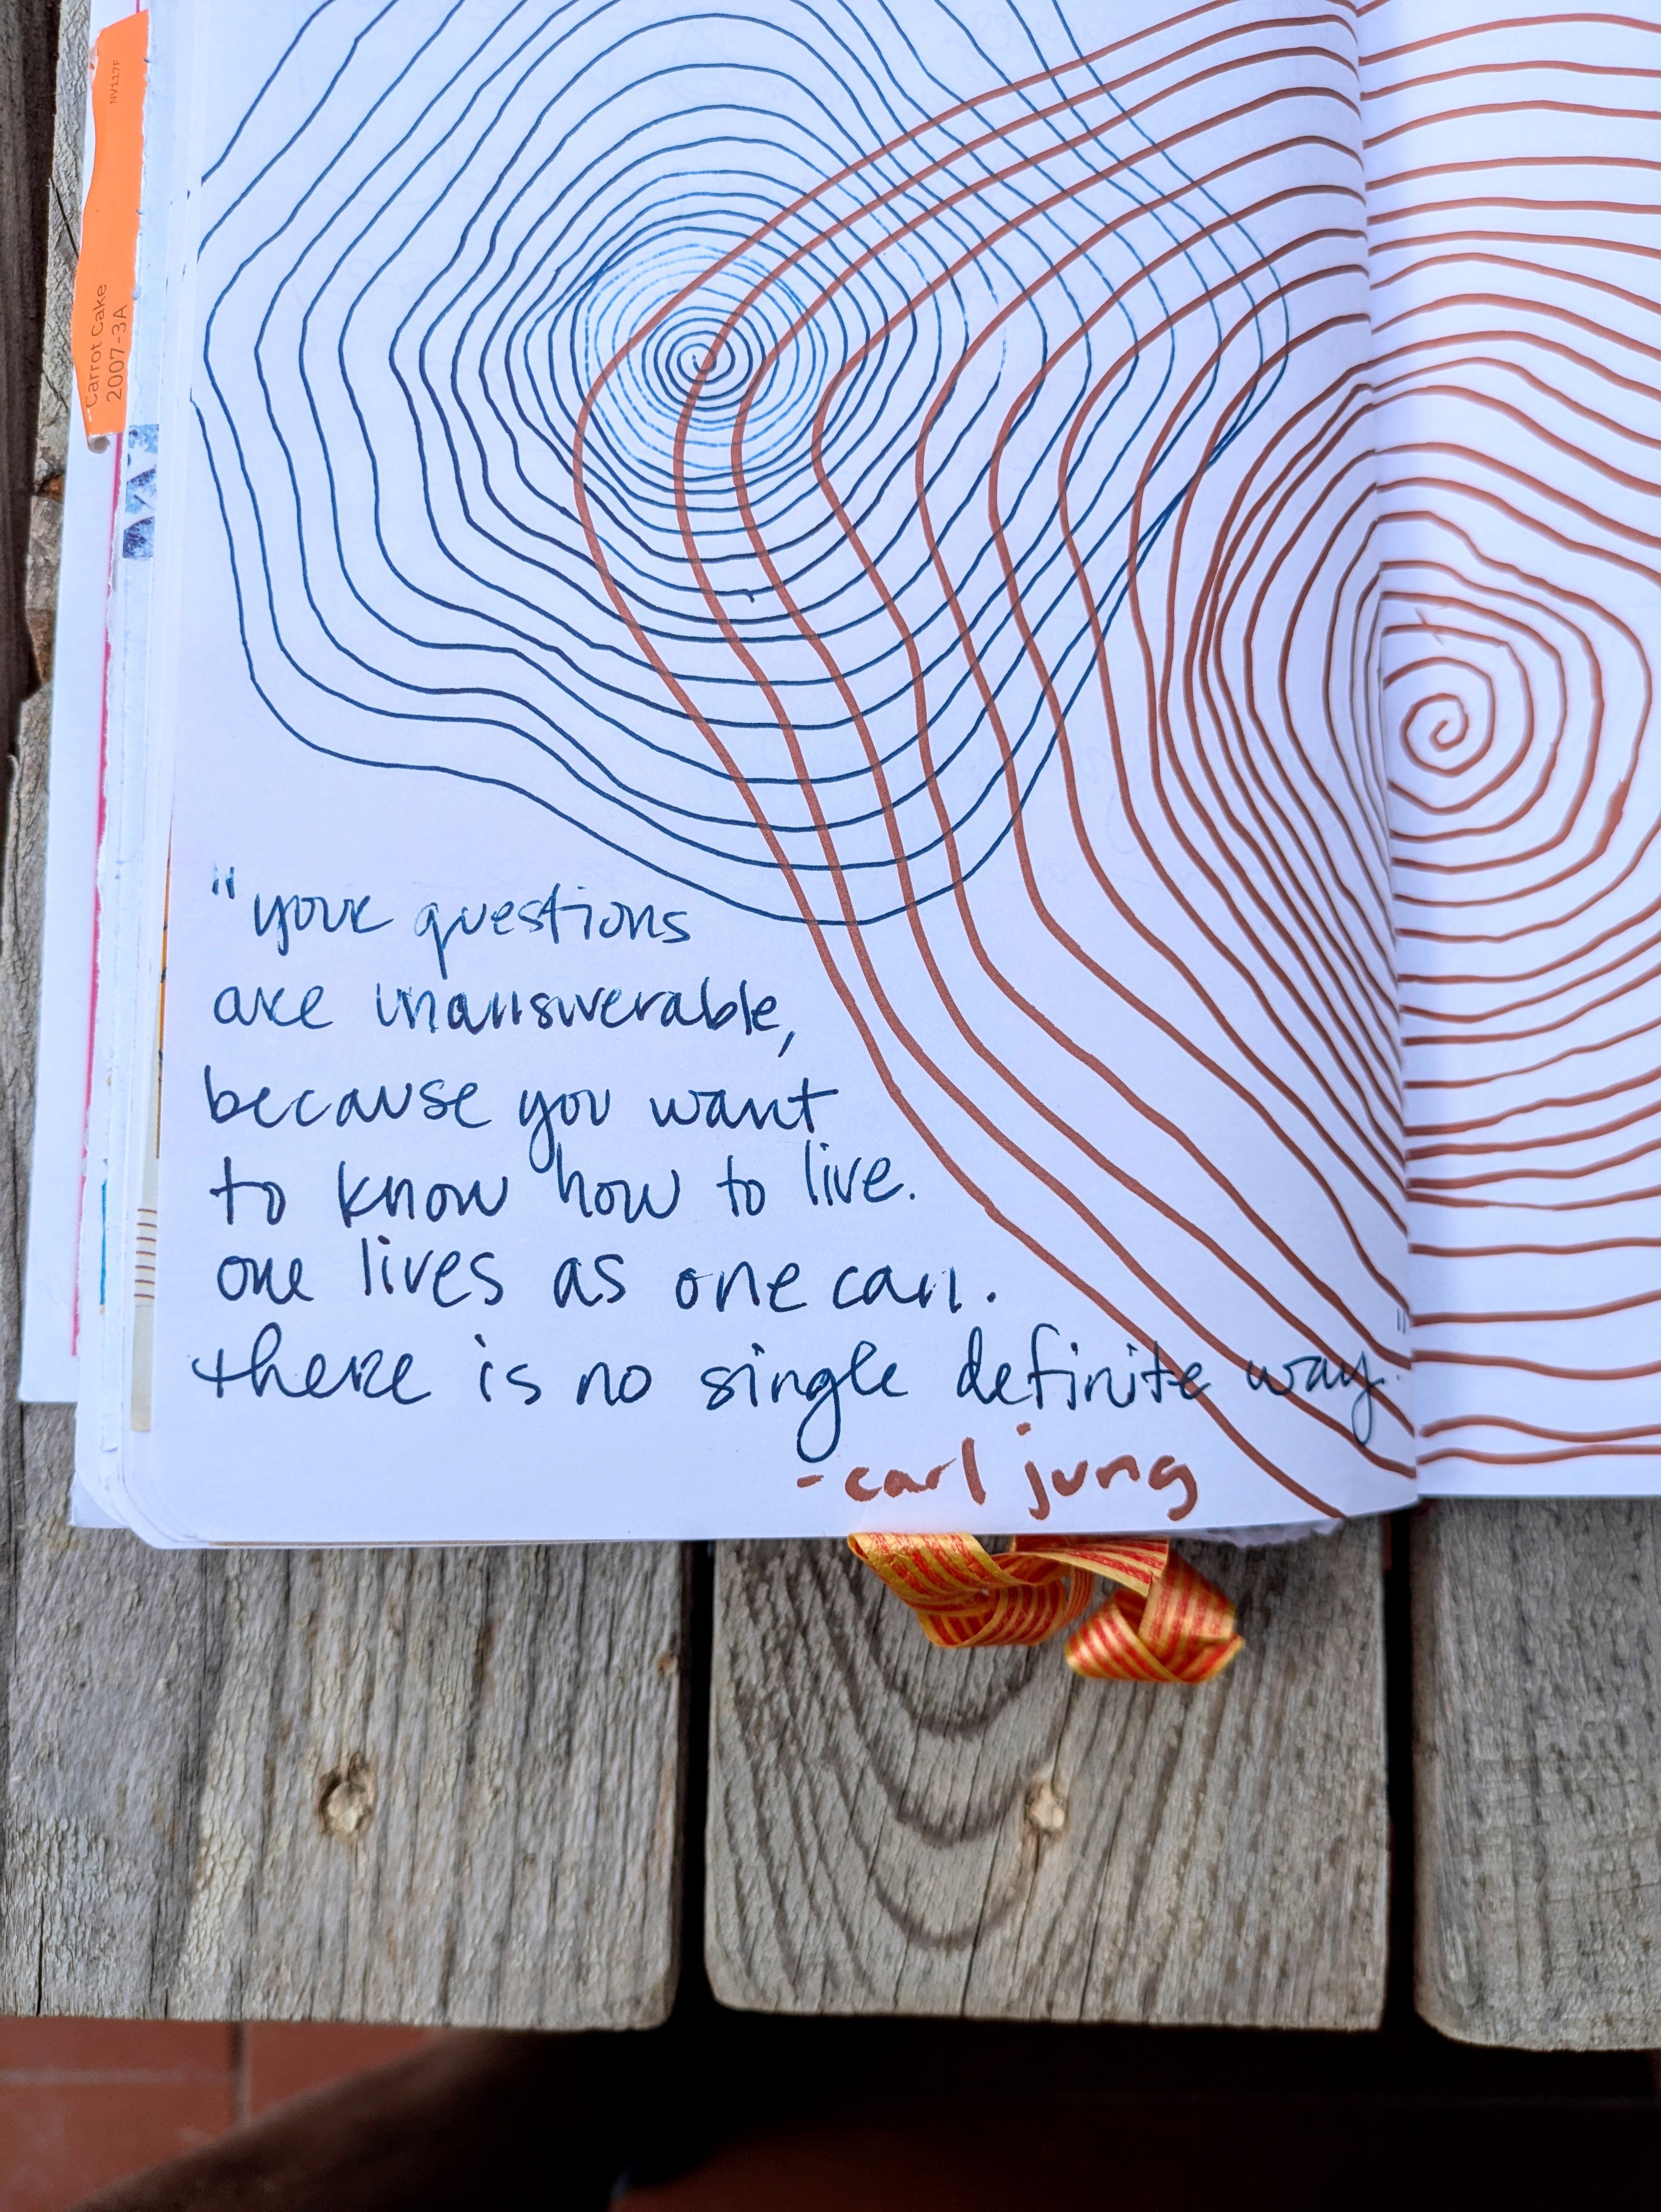 NV117F
Carrot Cake
2007-3A
"your questions
are inanswerable,
because you want
to know how to live.
one lives as one can.
there is no single definite way."
-carl jung